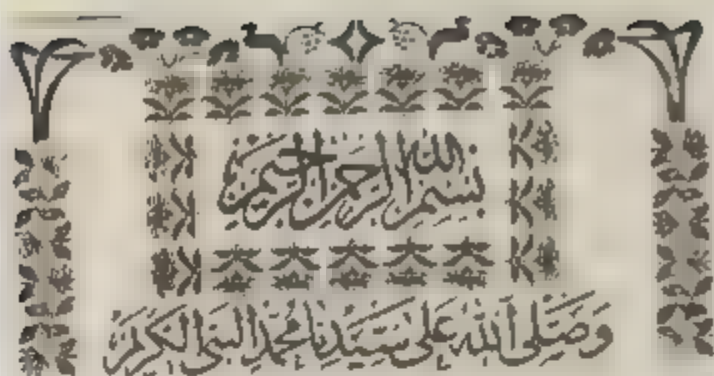 بسم الله الرحمن الرحيم
وصلى الله على سيدنا محمد النبي الكريم